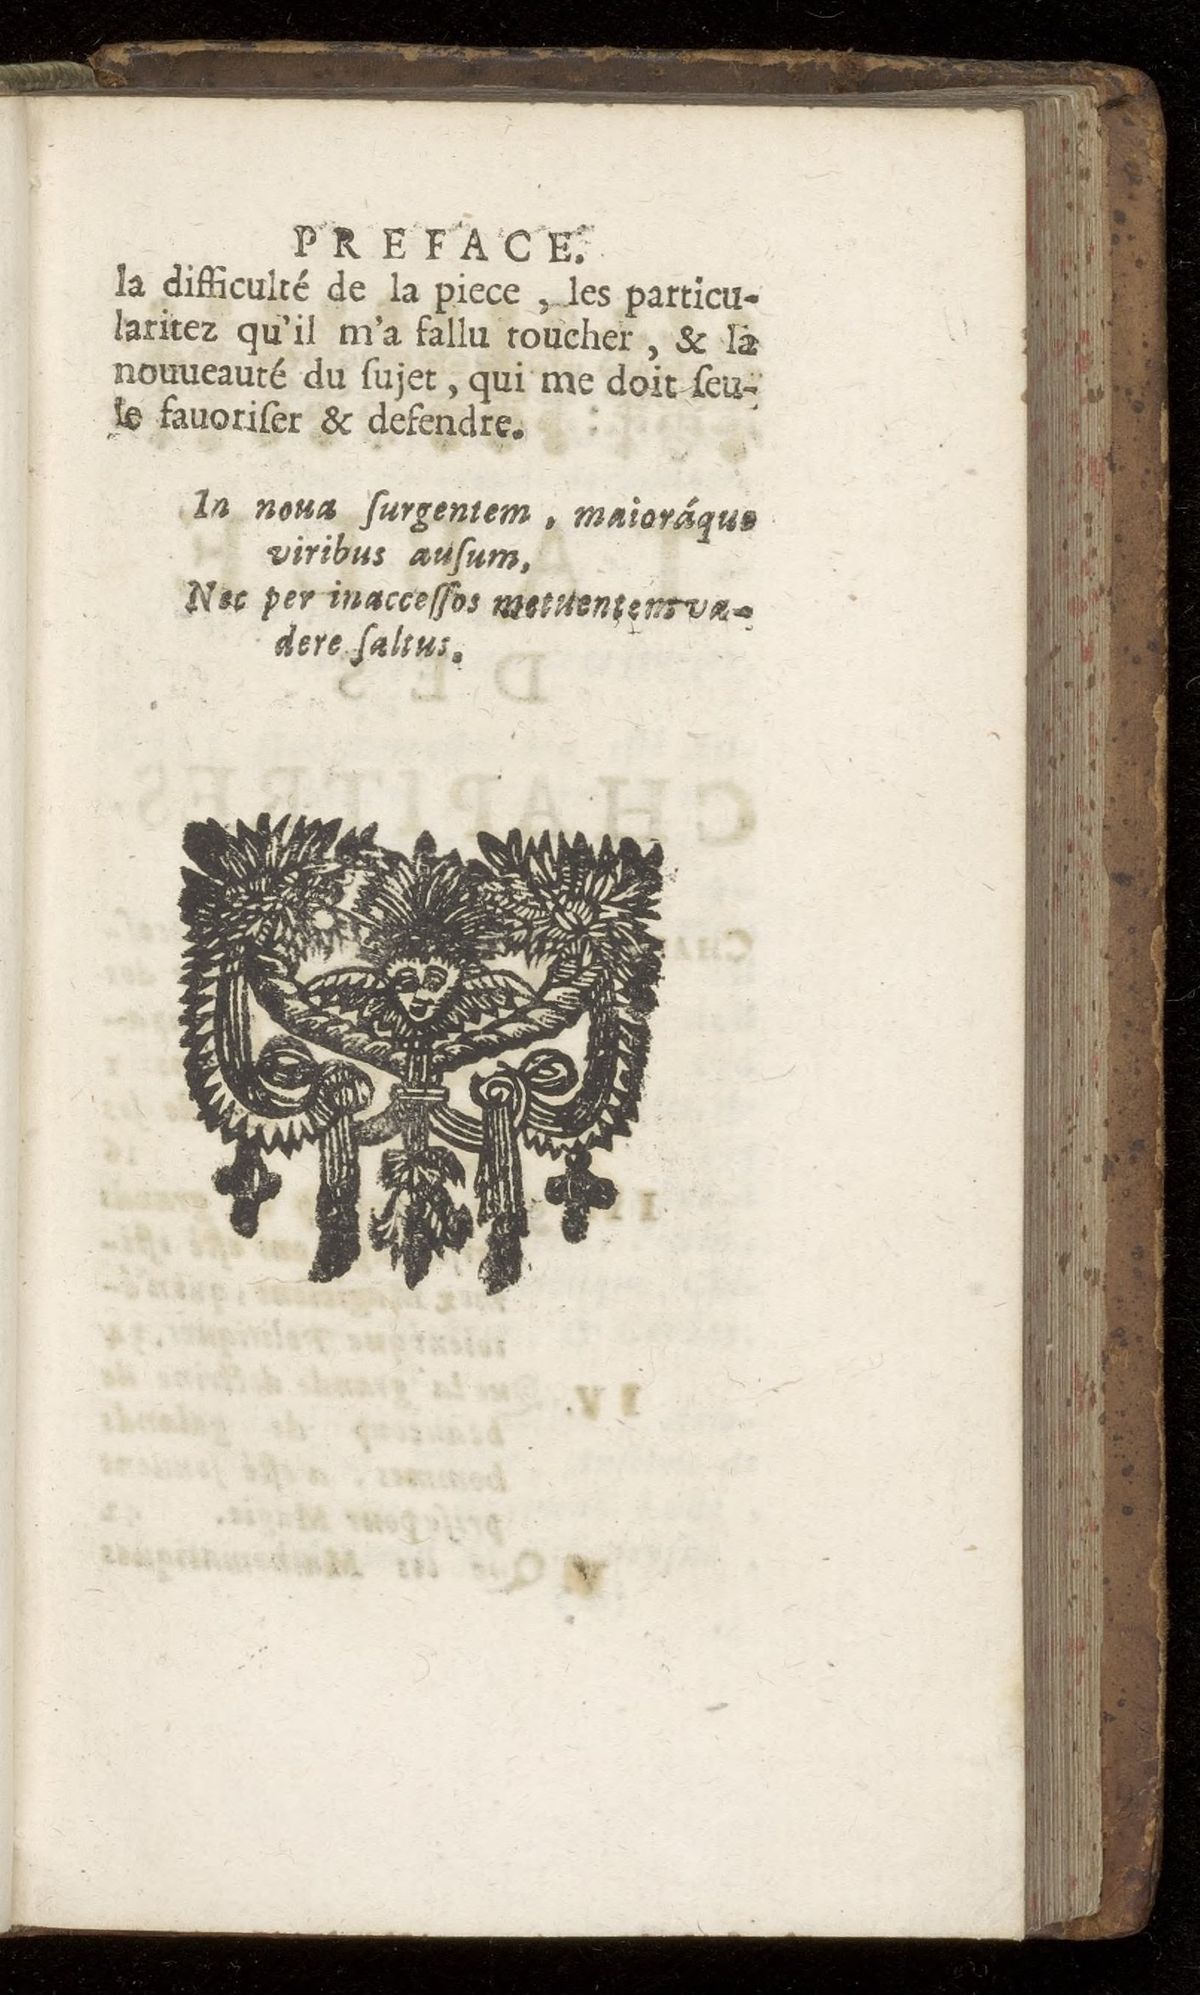 PREFACE.
la difficulté de la piece , les particu-
laritez qu'il m'a fallu toucher , & la
nouueauté du ſujet , qui me doit ſeu-
le fauoriſer & defendre.
In noua ſurgentem , maioráque
viribus auſum,
Nec per inacceſſos metuentem va-
dere ſaltus.